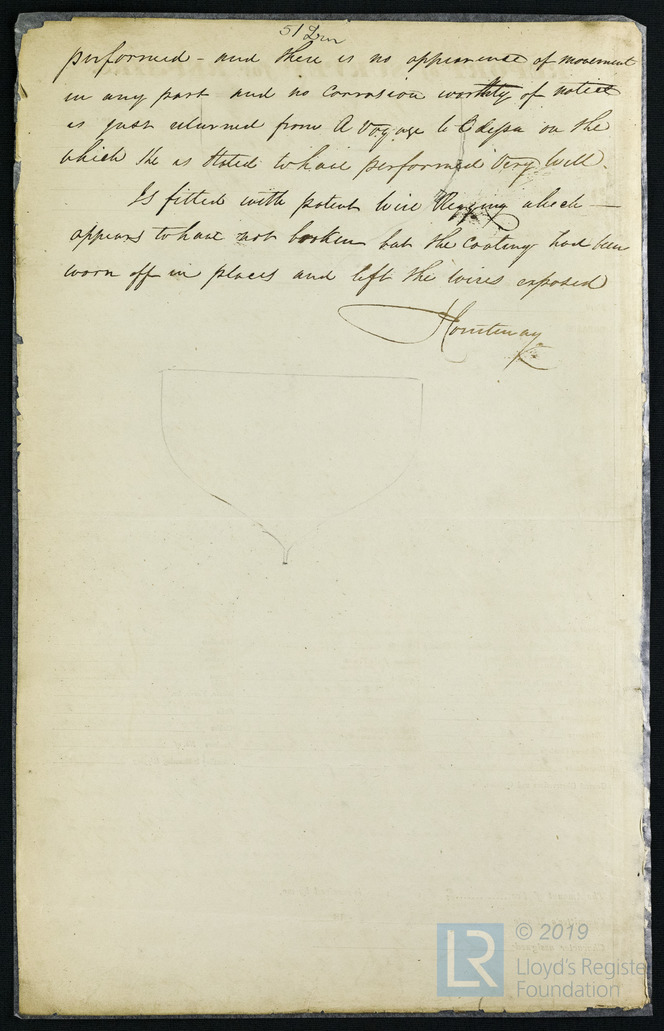 51
performed - and there is no appearance of movement
in any part and no corrosion worthy of notice
is just returned from A Voyage to Odessa on the
which She is Stated to have performed Very Well.
Is fitted with patent Wire Rigging which -
appears to have not broken but the coating had been
worn off in places and left the wires exposed
© 2019
LR
Lloyd's Register
Foundation